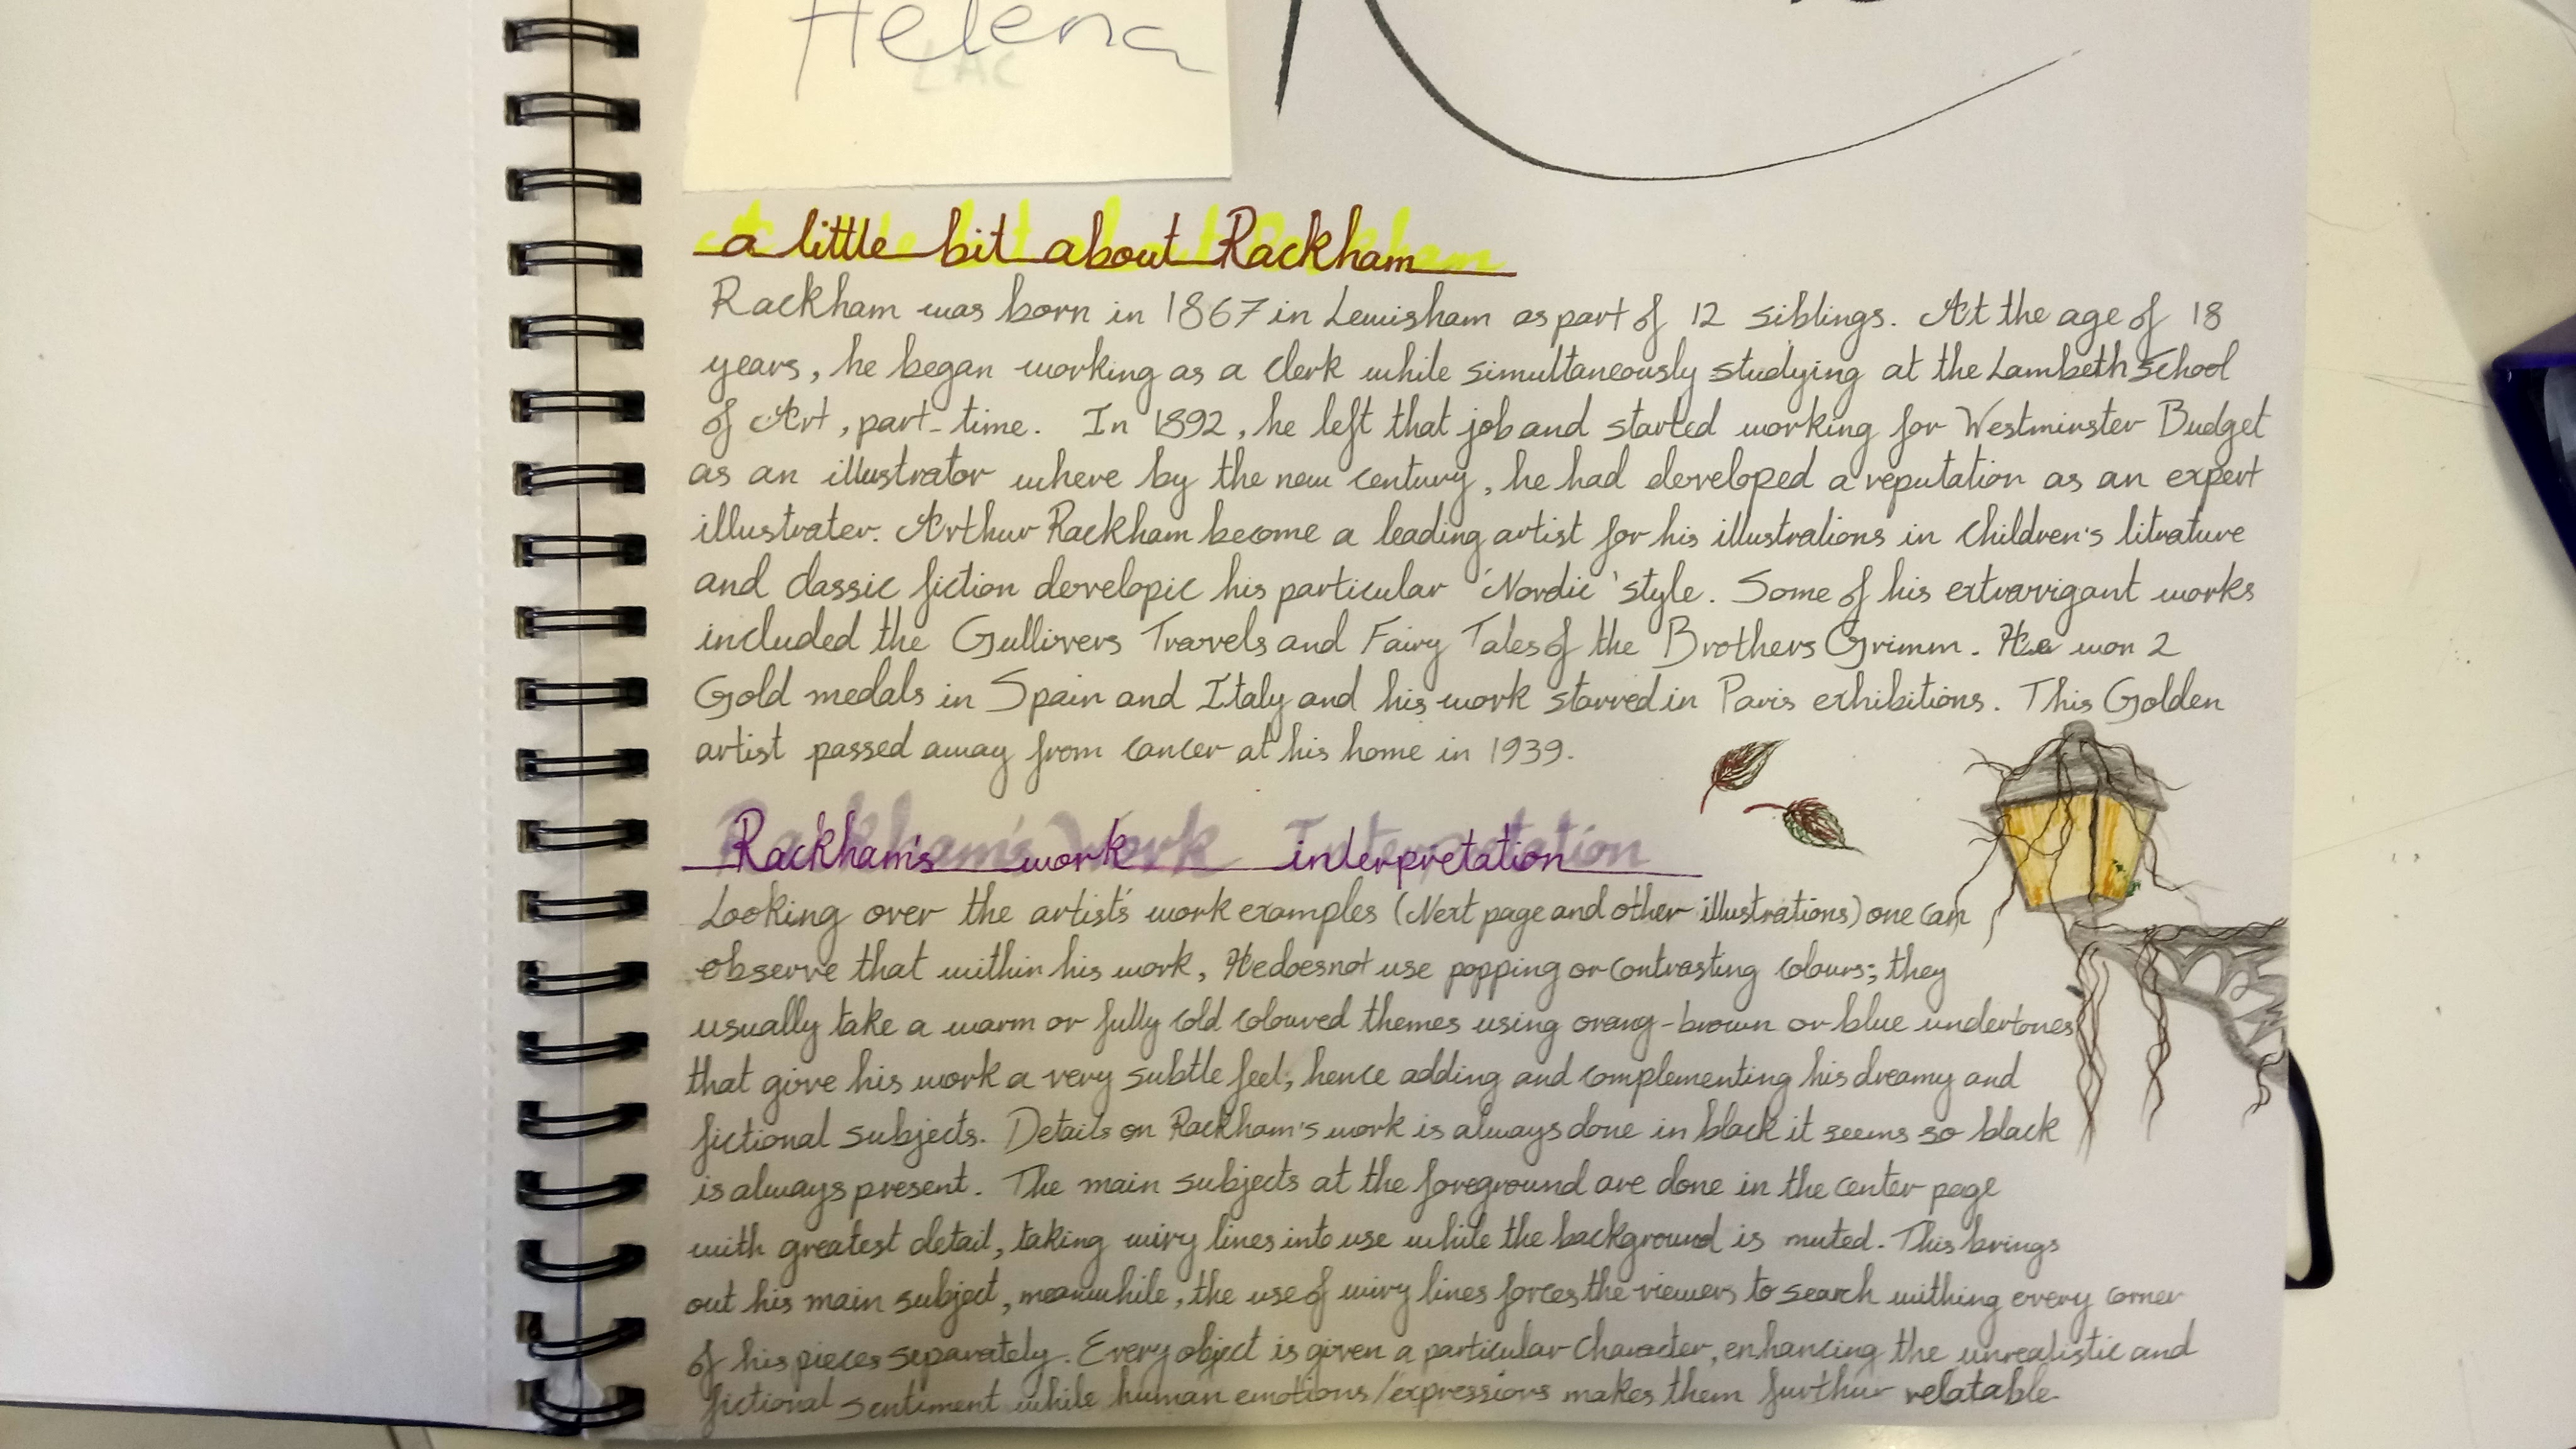 Helena
a little bit about Rackham
Rackham was born in 1867 in Lewisham as part of 12 siblings. At the age of 18
years, he began working as a clerk while simultaneously studying at the Lambeth School
of Art, part-time. In 1892, he left that job and started working for Westminster Budget
as an illustrator where by the new century, he had developed a reputation as an expert
illustrater. Arthur Rackham become a leading artist for his illustrations in children's litrature
and classic fiction developic his particular 'Nordic' style. Some of his extravrigant works
included the Gullivers Travels and Fairy Tales of the Brothers Grimm. He won 2
Gold medals in Spain and Italy and his work starred in Paris exhibitions. This Golden
artist passed away from cancer at his home in 1939.
Rackham's work interpretation
Looking over the artist's work examples (Next page and other illustrations) one can
observe that within his work, He does not use popping or contrasting colours; they
usually take a warm or fully cold coloured themes using orang-brown or blue undertones
that give his work a very subtle feel; hence adding and complementing his dreamy and
fictional subjects. Details on Rackham's work is always done in black it seems so black
is always present. The main subjects at the foreground are done in the center page
with greatest detail, taking wiry lines into use while the background is muted. This brings
out his main subject, meanwhile, the use of wiry lines forces the viewers to search withing every corner
of his pieces separately. Every object is given a particular character, enhancing the unrealistic and
fictional sentiment while human emotions/expressions makes them furthur relatable.